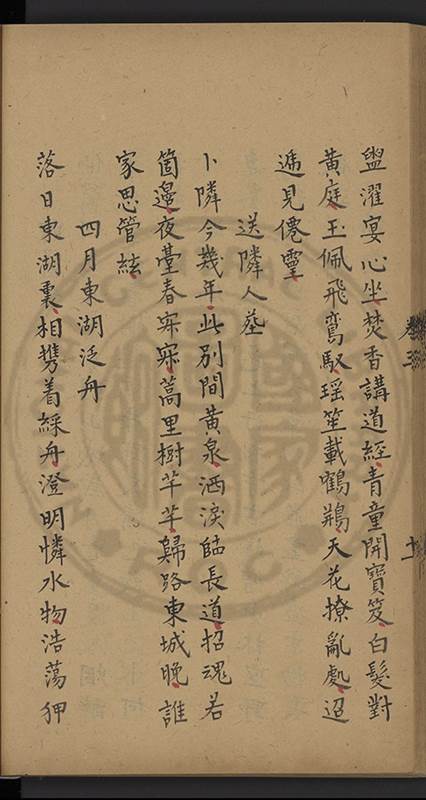 盥濯宴心坐焚香講道經青童開寶笈白髮對
黄庭玉佩飛鸞馭瑶笙載鶴鶄天花撩亂處迢
遞見僊靈
送隣人葬
卜隣今幾年此别間黄泉洒淚臨長道招魂若
箇邊夜臺春寂寂蒿里樹芊芊歸路東城晚誰
家思管絃
四月東湖泛舟
落日東湖裏相携着綵舟澄明憐水物浩蕩狎
卷三
十一